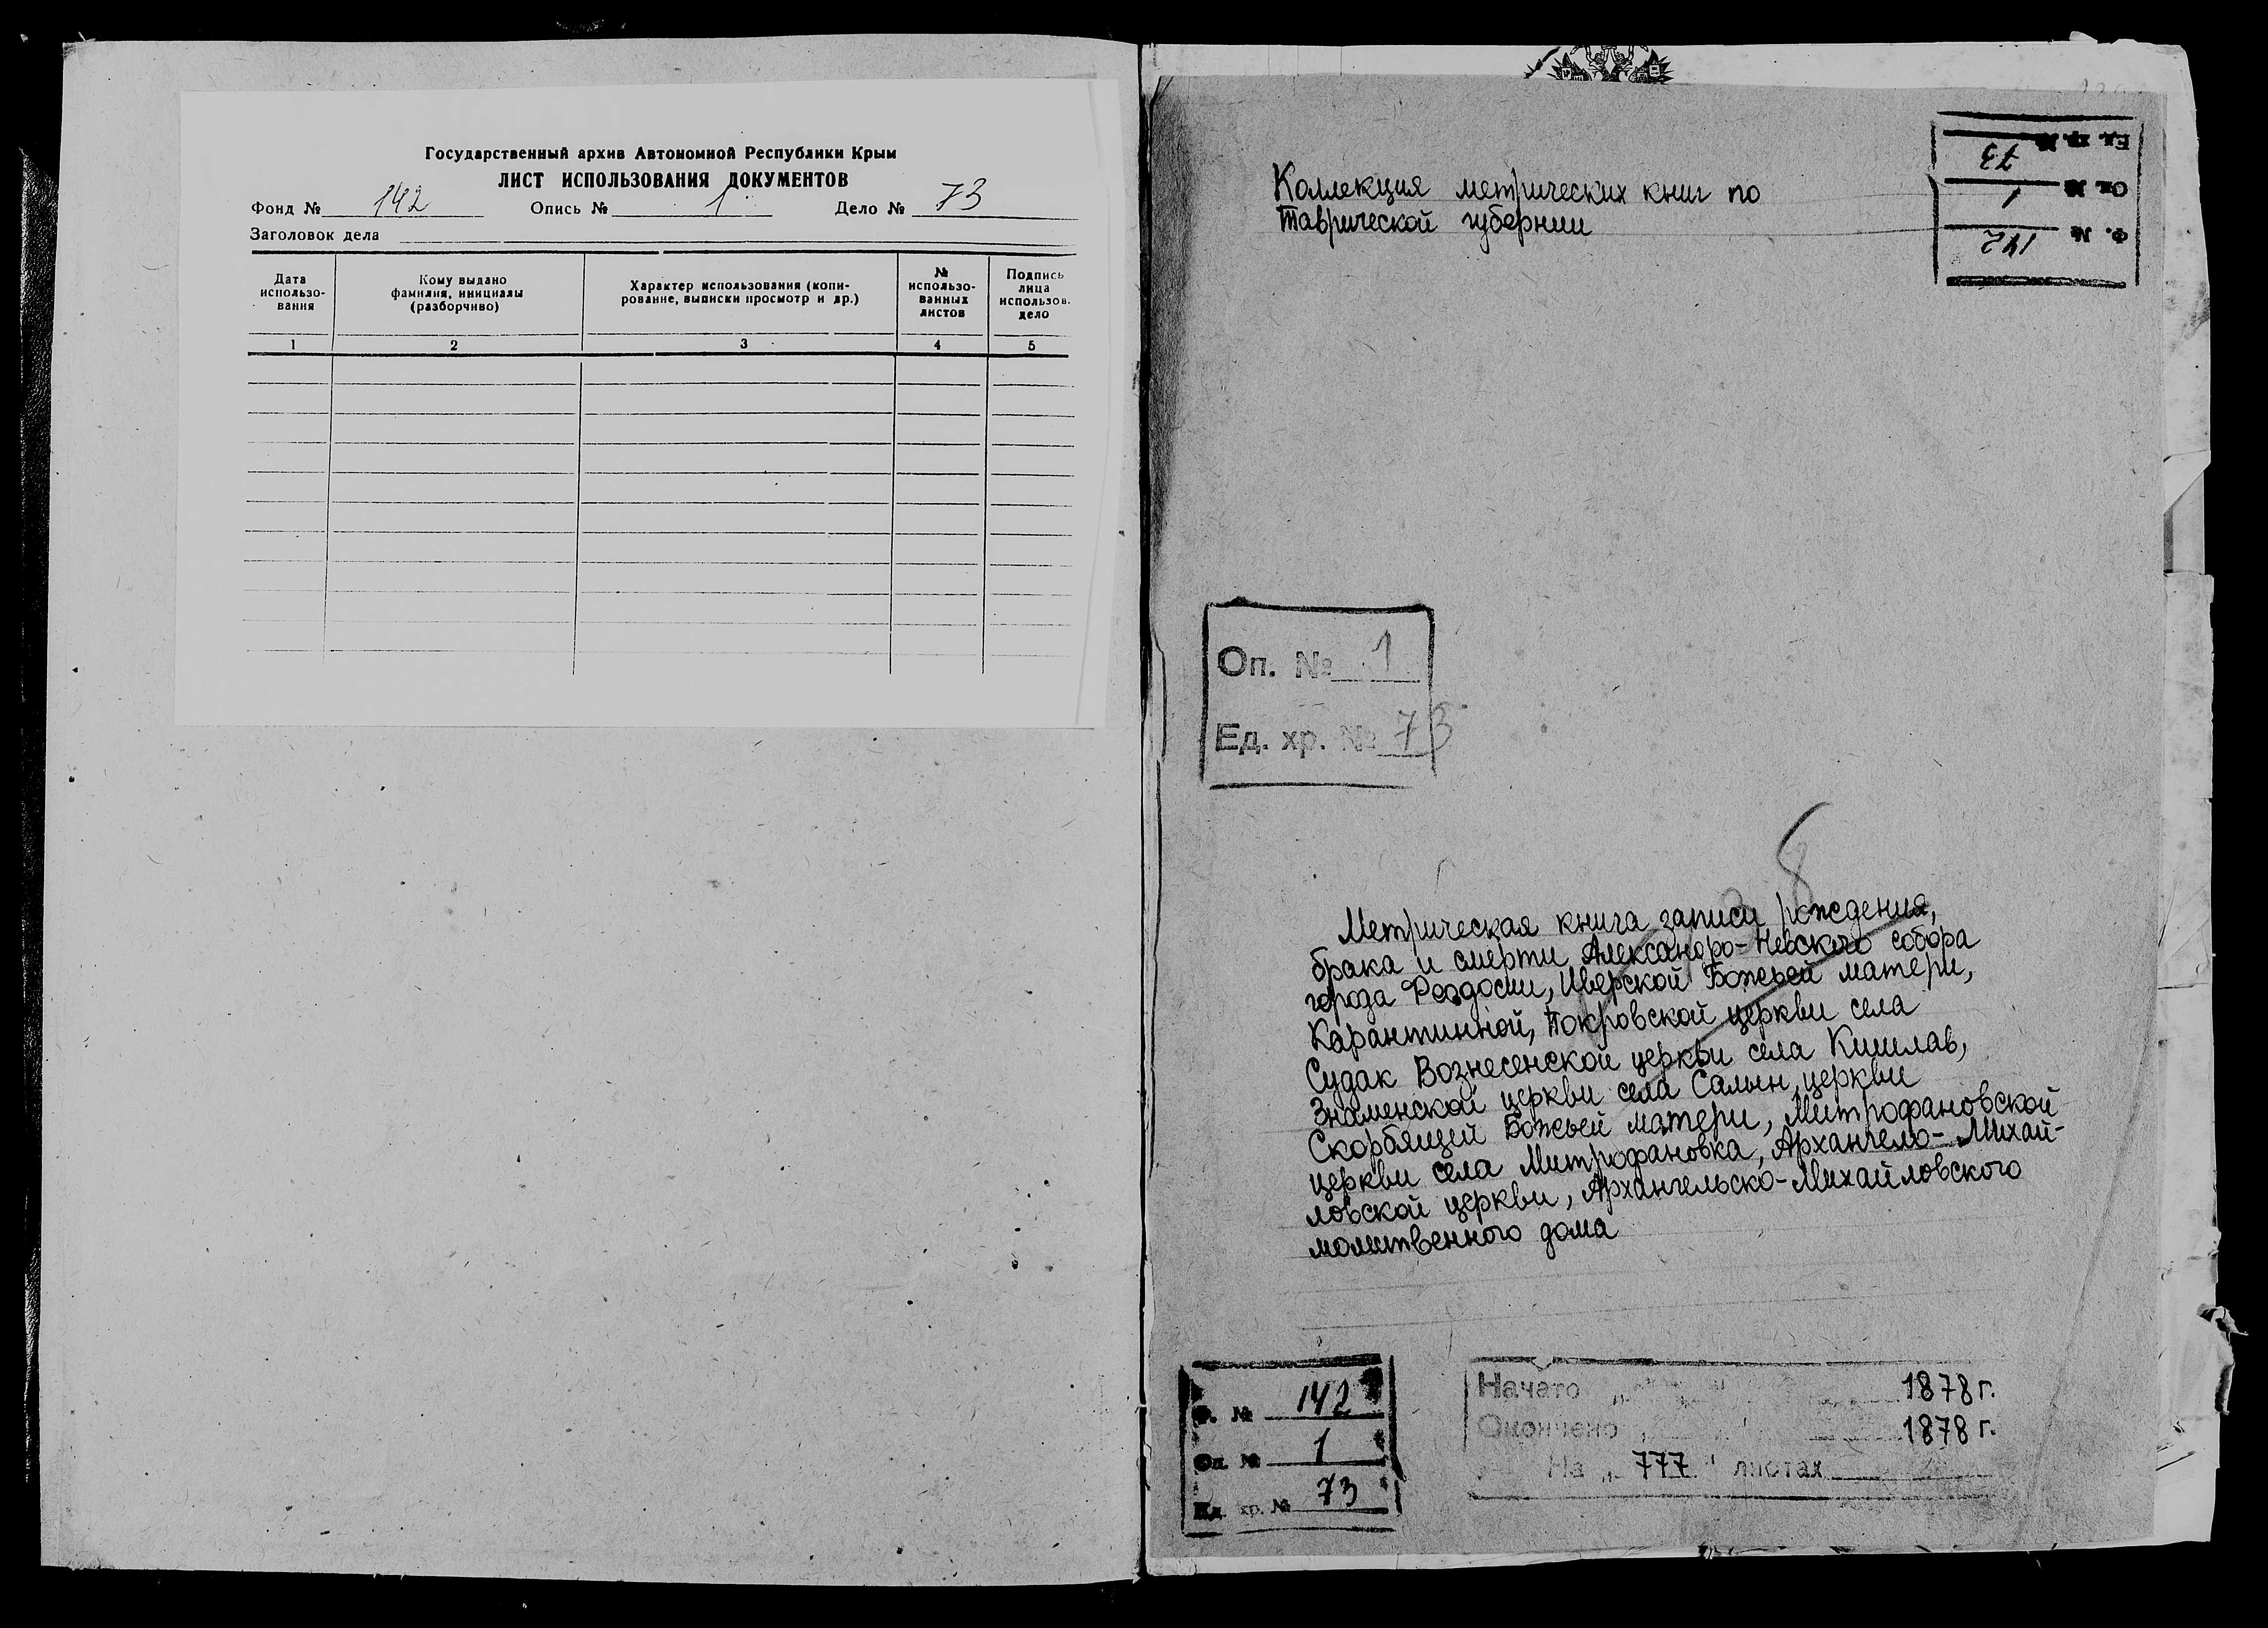 Государственный архив Автономной Республики Крым
ЛИСТ ИСПОЛЬЗОВАНИЯ ДОКУМЕНТОВ
Фонд № 142 Опись № 1 Дело № 73
Заголовок дела
Дата использо-вания
Кому выдано фамилия, инициалы (разборчиво)
Характер использования (копи-рование, выписки просмотр и др.)
№ использо-ванных листов
Подпись лица использов. дело
1 2 3 4 5
Коллекция метрических книг по
Таврической губернии
Ф. № 142
Оп. № 1
Ед. хр. № 73
Оп. № 1
Ед. хр. № 73
8
Метрическая книга записи рождения,
брака и смерти Александро-Невского собора
города Феодосии, Иверской Божьей матери,
Карантинной, Покровской церкви села
Судак Вознесенской церкви села Кишлав,
Знаменской церкви села Салын, церкви
Скорбящей Божьей матери, Митрофановской
церкви села Митрофановка, Архангело-Михай-
ловской церкви, Архангельско-Михайловского
молитвенного дома
Ф. № 142
Оп. № 1
Ед. хр. № 73
Начато „ " 1878 г.
Окончено „ " 1878 г.
На „ 777 " листах